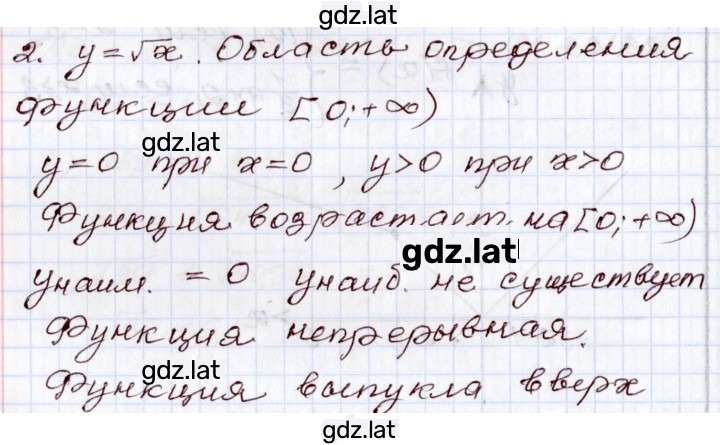 gdz.lat
2. y=√x. Область определения
функции [0; +∞)
gdz.lat
y=0 при x=0, y>0 при x>0
gdz.lat
Функция возрастает на [0; +∞)
gdz.lat
yнаим. = 0 yнаиб. не существует
Функция непрерывная.
gdz.lat
Функция выпукла вверх
gdz.lat